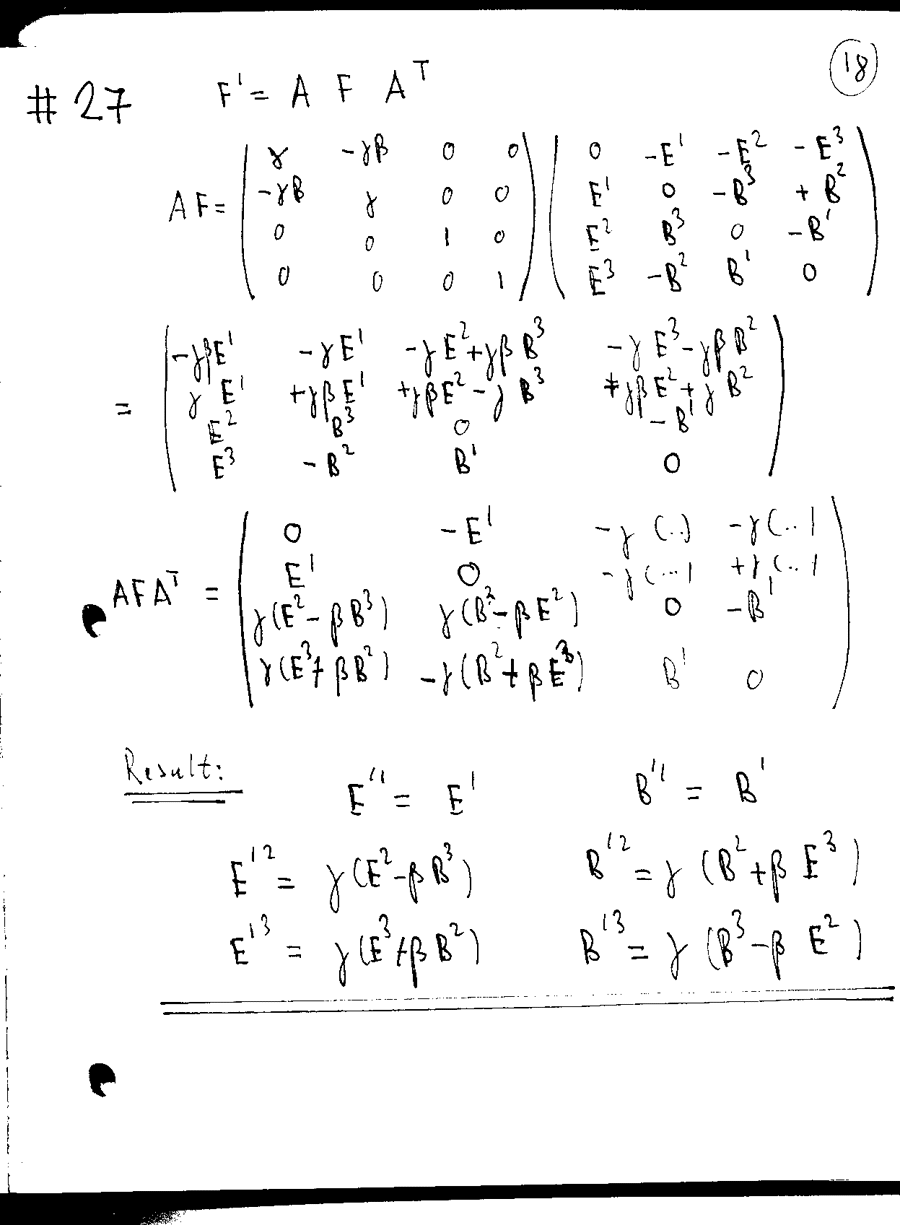 18
# 27 F' = A F A^T
γ -γβ 0 0 0 -E^1 -E^2 -E^3
AF = -γβ γ 0 0 E^1 0 -B^3 +B^2
0 0 1 0 E^2 B^3 0 -B^1
0 0 0 1 E^3 -B^2 B^1 0
-γβE^1 -γE^1 -γE^2+γβB^3 -γE^3-γβB^2
= γE^1 +γβE^1 +γβE^2-γB^3 +γβE^2+γB^2
E^2 B^3 0 -B^1
E^3 -B^2 B^1 0
0 -E^1 -γ(..) -γ(..)
AFA^T = E^1 0 -γ(...) +γ(..)
γ(E^2-βB^3) γ(B^3-βE^2) 0 -B^1
γ(E^3+βB^2) -γ(B^2+βE^3) B^1 0
Result:
E'^1 = E^1 B'^1 = B^1
E'^2 = γ(E^2-βB^3) B'^2 = γ(B^2+βE^3)
E'^3 = γ(E^3+βB^2) B'^3 = γ(B^3-βE^2)